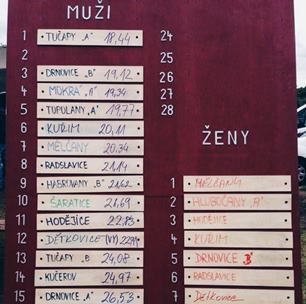 MUŽI
1 TUČAPY „A" 18,44
2
3 DRNOVICE „B" 19,12
4 MOKRÁ „A" 19,34
5 TUPULANY „A" 19,77
6 KUŘIM 20,11
7 MĚLČANY 20,34
8 RADSLAVICE 21,14
9 HABRŮVANY „B" 21,62
10 ŠARATICE 21,69
11 HODĚJICE
12 DĚTKOVICE (VY) 22,91
13 TUČAPY „B" 24,08
14 KUČEROV 24,97
15 DRNOVICE „A" 26,53
24
25
26
27
28
ŽENY
1 MĚLČANY
2 HLUBOČANY „A"
3 HODĚJICE
4 KUŘIM
5 DRNOVICE B
6 RADSLAVICE
7 Dětkovice